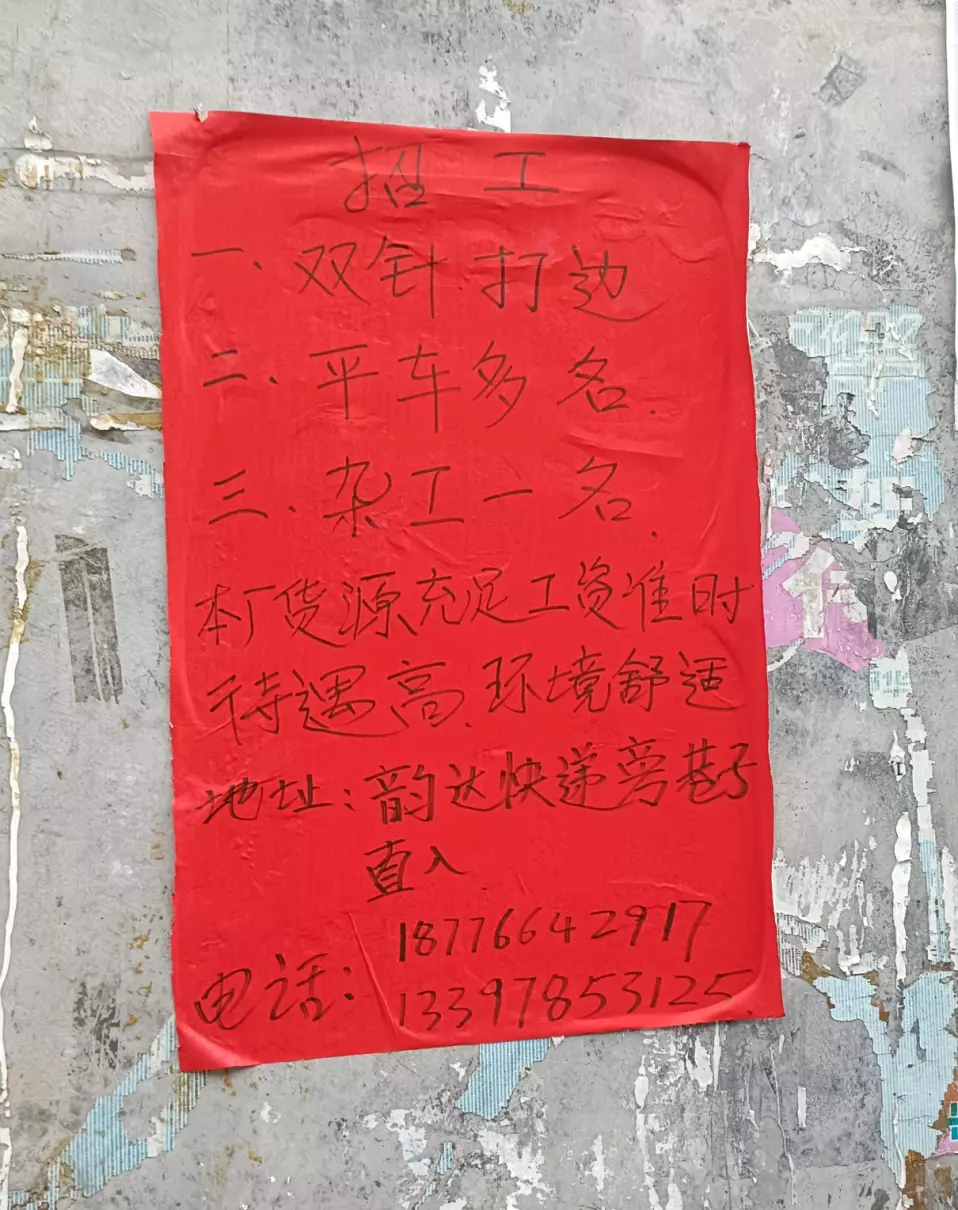 招工
一、双针 打边
二、平车多名.
三、杂工一名.
本厂货源充足工资准时
待遇高、环境舒适
地址：韵达快递旁巷子
直入.
18776642917
电话：
13397853125.